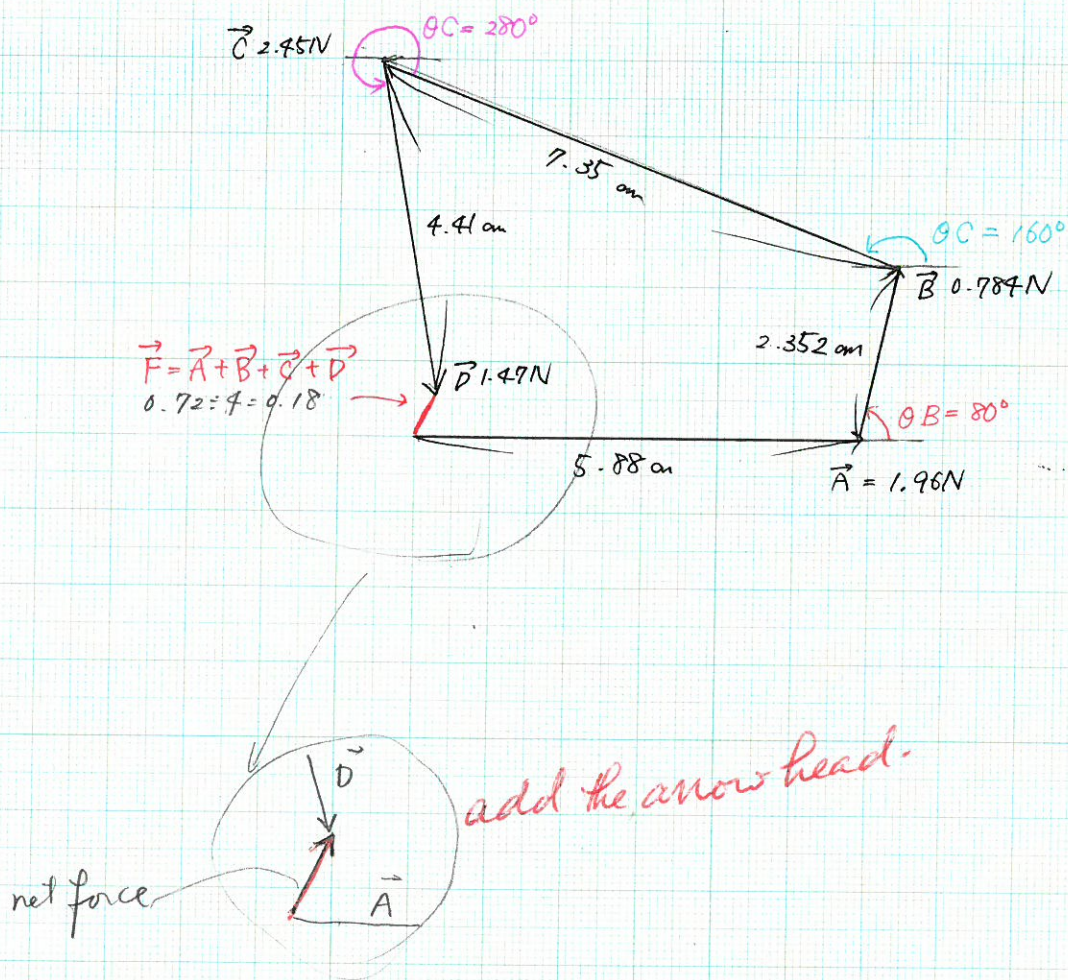 C⃗ 2.45N
θC = 280°
7.35 cm
4.41 cm
θC = 160°
B⃗ 0.784N
2.352 cm
F⃗ = A⃗ + B⃗ + C⃗ + D⃗
0.72÷4=0.18
D⃗ 1.47N
θB = 80°
5.88 cm
A⃗ = 1.96N
D⃗
add the arrow head.
net force
A⃗